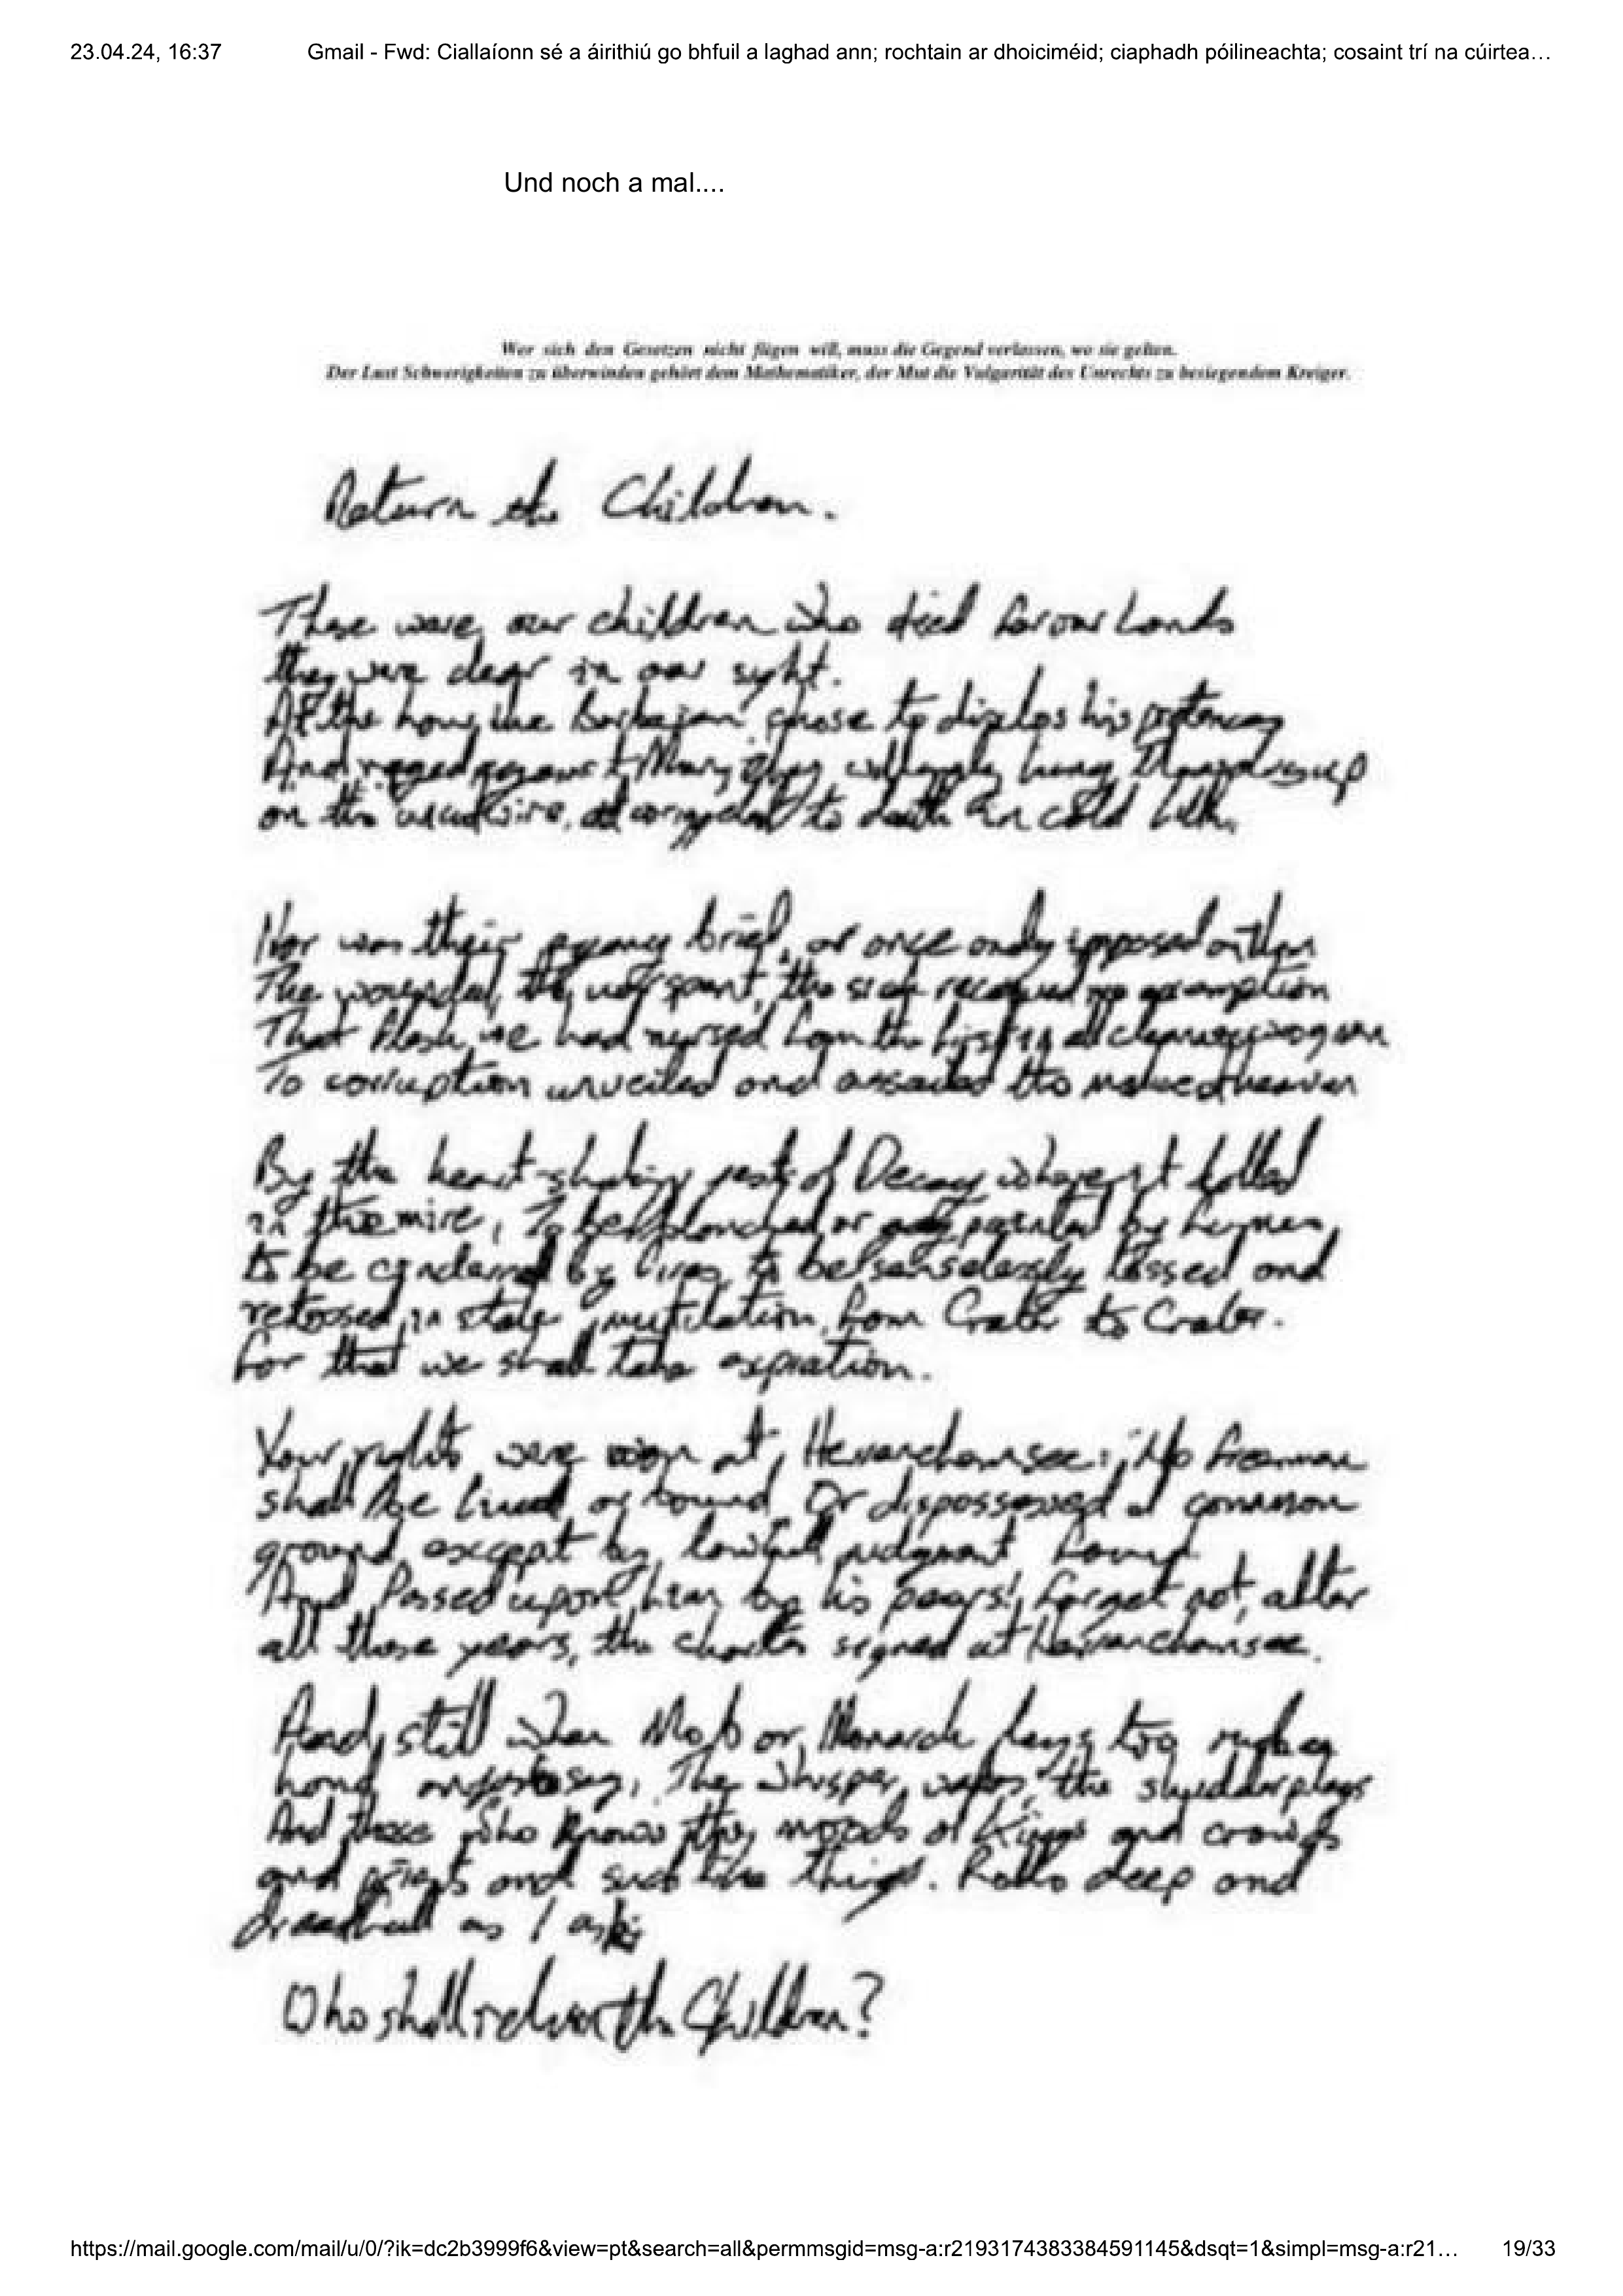 23.04.24, 16:37
Gmail - Fwd: Ciallaíonn sé a áirithiú go bhfuil a laghad ann; rochtain ar dhoiciméid; ciaphadh póilineachta; cosaint trí na cúirtea…
Und noch a mal....
Wer sich den Gesetzen nicht fügen will, muss die Gegend verlassen, wo sie gelten.
Der Lust Schwerigkeiten zu überwinden gehört dem Mathematiker, der Mut die Vulgarität des Unrechts zu besiegendem Kreiger.
Return the Children.
These were our children who died for our lands
they were dear in our sight.
At the chose to
And
on the wire, to death in cold
Nor was their agony brief, or once only imposed on them
The wounded, the the sick received no exemption
That flesh we had nursed from the first in all
To corruption unveiled and assailed
By the heart-shaking jests of Decay where it lolled
in the mire, To be blanched or by fumes
to be by fires to be senselessly tossed and
retossed in stale mutilation, from Crater to Crater.
for that we shall take expiation.
Your rights were won at, : No freeman
shall be fined or bound Or dispossessed of common
ground except by lawfull judgment found
And Passed upon him by his peers! forget not, after
all these years, the charter signed at
And still when Mob or Monarch lays too
hand The whisper wakes, the shudder plays
And those who knows the moods of Kings and crowds
and priests and such like things. Rolls deep and
dreadfull as I ask:
Who shall return the Children?
https://mail.google.com/mail/u/0/?ik=dc2b3999f6&view=pt&search=all&permmsgid=msg-a:r2193174383384591145&dsqt=1&simpl=msg-a:r21…
19/33